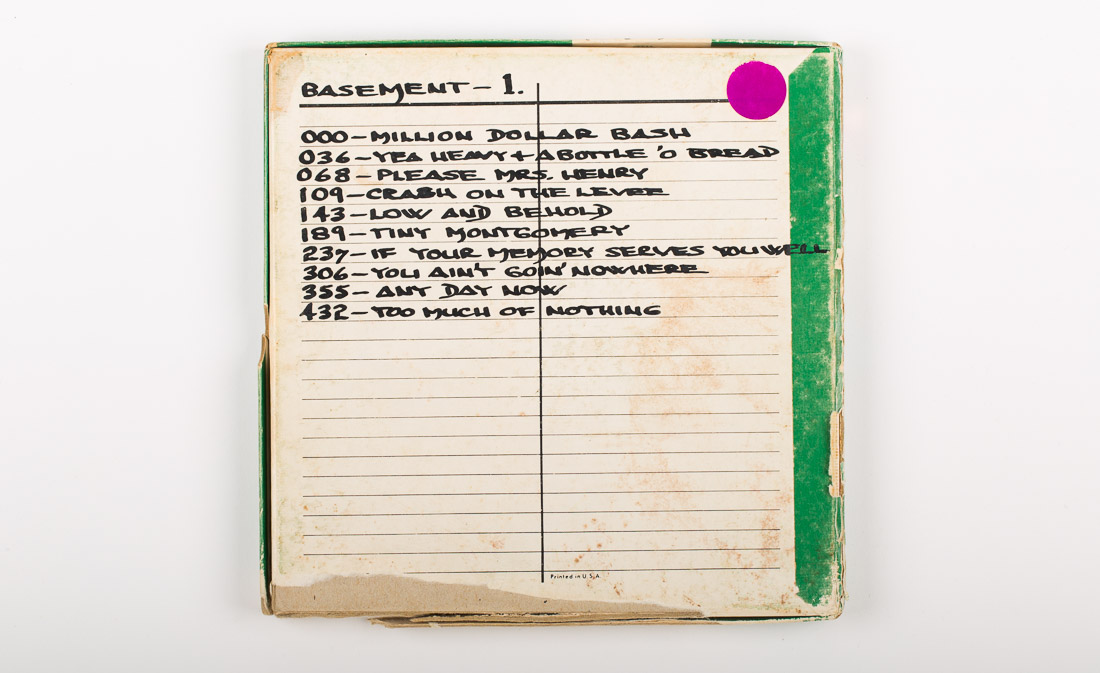 BASEMENT - 1.
000 - MILLION DOLLAR BASH
036 - YEA HEAVY + A BOTTLE 'O BREAD
068 - PLEASE MRS. HENRY
109 - CRASH ON THE LEVEE
143 - LOW AND BEHOLD
189 - TINY MONTGOMERY
237 - IF YOUR MEMORY SERVES YOU WELL
306 - YOU AIN'T GOIN' NOWHERE
355 - ANY DAY NOW
432 - TOO MUCH OF NOTHING
Printed in U.S.A.